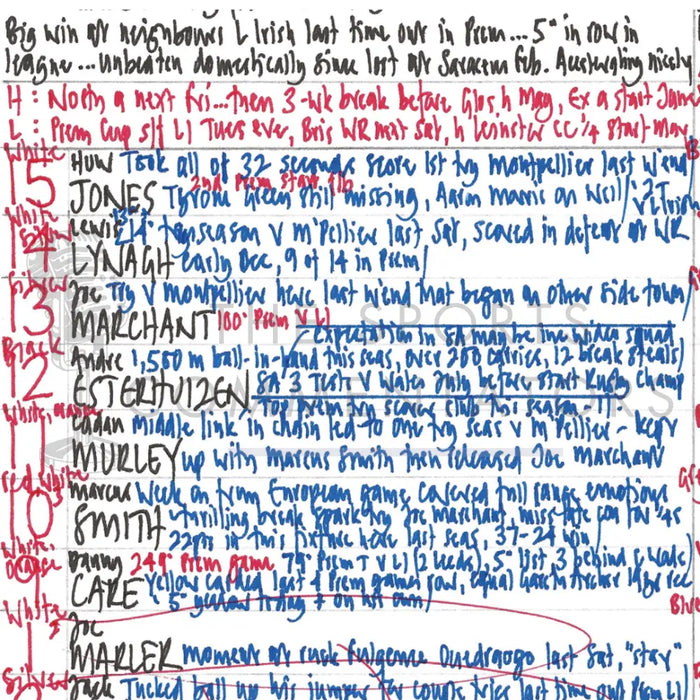 Big win at neighbours L Irish last time out in Prem... 5th in row in
league... unbeaten domestically since lost at Saracens Feb. Accelerating nicely
H: North a next Fri... then 3-wk break before Glos h May, Ex a start June
L: Prem Cup s/f LI Tues eve, Bris WR mat Sat, h Leinster CC 1/4 start May
White
15
HUW Took all of 32 seconds score 1st try Montpellier last w'end
2nd Prem start
JONES Tyrone Green still missing, Aaron Morris on
White
14
Lewis 14th try season v M'Pellier last Sat, scored in defeat at WR
LYNAGH early Dec, 9 of 14 in Prem
Silver
13
Joe Try v Montpellier here last w'end that began on other side town
MARCHANT 100th Prem v LI
Expectation in SA may be in wider squad
Black
12
Andre 1,580 m ball-in-hand this seas, over 200 carries, 12 break steals
ESTERHUIZEN SA 3 Tests v Wales July before start Rugby Champ
THE SPORTS COMMENTATORS
Top Prem try scorer club this season
White, orange
11
Cadan middle link in chain led to one try seas v M'Pellier - kept
MURLEY up with Marcus Smith then released Joe Marchant
red, white
10
Marcus Week on from European game, covered full range emotions
SMITH thrilling break spark try Joe Marchant, miss late con for
22pts in this fixture here last seas, 37-24 win
White, orange
9
Danny 249th Prem game 79th Prem T v LI (2 leeds), 5th list, 3 behind
CARE Yellow carded last 4 Prem games row, equal Gareth Archer
5th yellow today + on his own
White
1
Joe
MARLER moment at ruck Fulgence Ouedraogo last Sat, "stay"
Silver
Jack Tucked ball up his jumper for couple tries last time out Prem LI